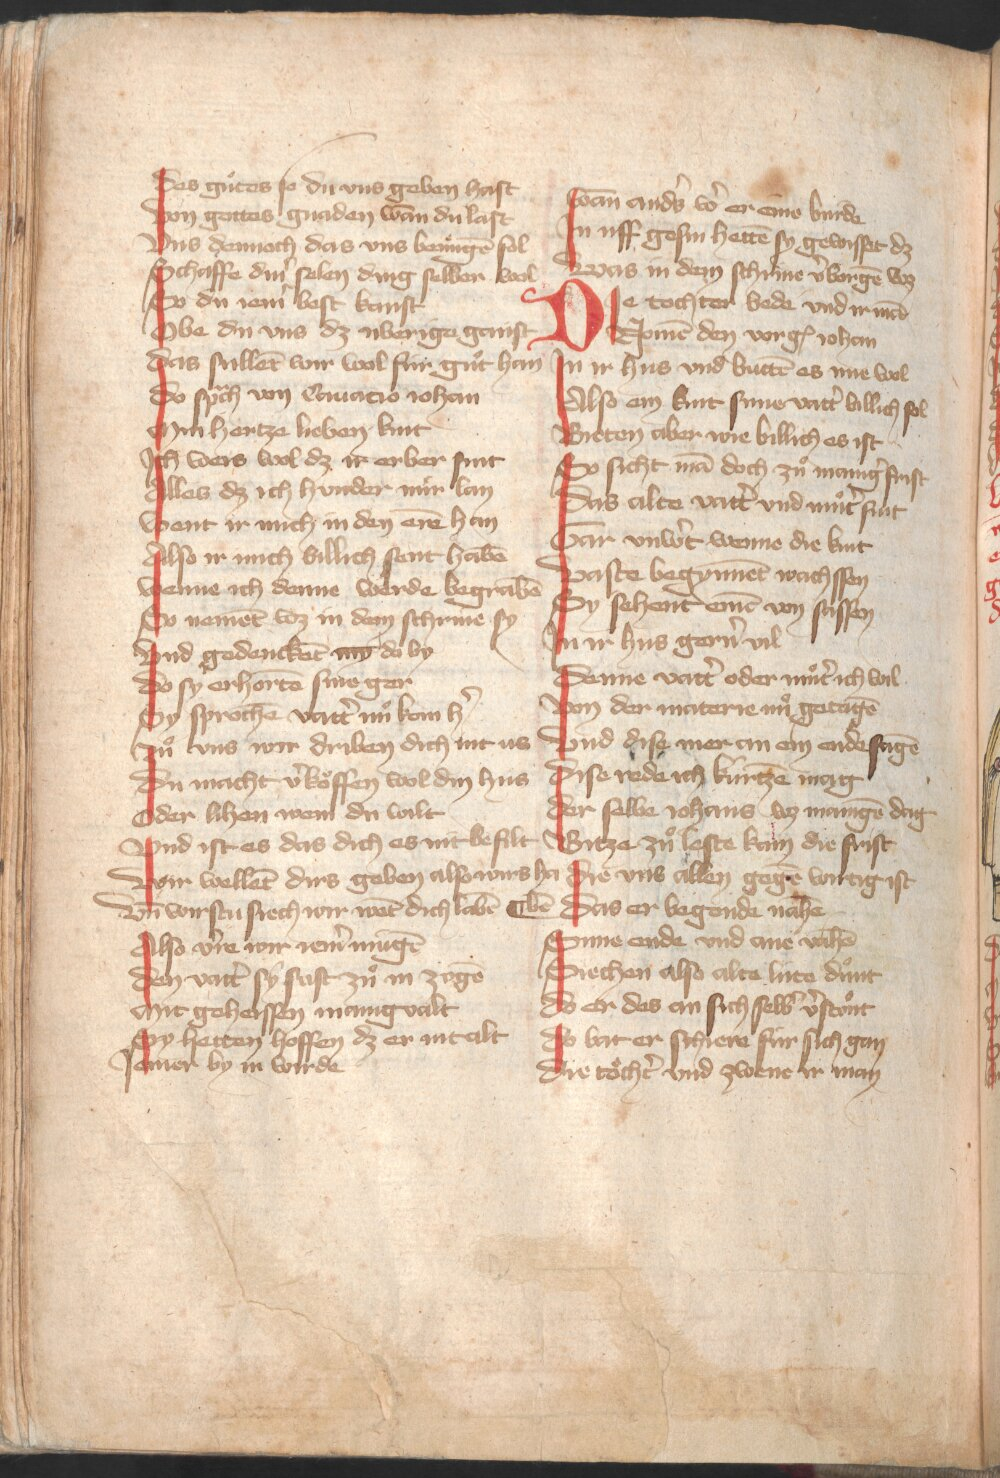 Des guͦtes so du vns geben hast
Von gottes gnaden wan du last
Vns dennoch das vns benuͤgē sol
Schaffe diner selen ding selber wol
So du iemer best kanst
Obe du vns dz uberige ganst
Das sullent wir wol fur guͦt han
Do sp̄ch von Cauacio iohan
Min hertze lieben kint
Ich weis wol dz ir erber sint
Alles dz ich hunder mir lan
Went ir mich in den erē han
Also ir mich billich sent habē
Wenne ich denne werde begrabē
So nemēt wz in dem schrine sy
Vnd gedenckēt do by
Do sy erhortē sine ger
Sy sprochē vatter nuͦ kom her
Zuͦ vns wir triben dich nit us
Du macht v'koͤffen wol din hus
Oder lihen wem du wilt
Vnd ist es das dich es nit befilt
Wir wellēt dirs geben also wirs ha
Vn̄ wirstu siech wir wēt dich laben
Also v're wir iemer mugē
Den vatter sy fast zuͦ in zugē
Mit geheissen manigvalt
Sy hetten hoffen dz er nit alt
Iemer by in wurde
wan anders wer er eine burde
In uff gesin hettē sy gewisset dz
Was in dem schrine v'borgē wz
Die tochter bede vnd ir man
Nomē den vorg iohan
In ir hus vnd buttēt es ime wol
Also ein kint sime vatter billich sol
Bieten aber wie billich es ist
So sicht mā doch zuͦ manig' frist
Das alte vatter vnd muͦter sint
Gar unwert wenne die kint
Vaste begynnēt wachssen
Sy sehent einē von sassen
In ir hus gern' vil
Denne vatter oder muͦter ich wil
Von der materie nuͦ getagē
Vnd dise mer an ein ende sagē
Dise rede ich kurtzē mag
Der selbe iohans wz manigē dag
Bitze zuͦ leste kam die frist
Die vns allen gegē wirtig ist
Das er begonde nahē
Sinne ende vnd ane vahē
Siechen also alte lute duͦnt
Do er des an sich selb' v'stuͦnt
Do bat er schiere fur sich gan
Die toͤchter vnd zwene ir man